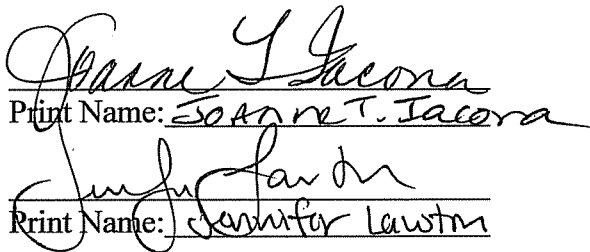 Joanne T Iacona
Print Name: JoAnne T. Iacona
Jennifer Lawton
Print Name: Jennifer Lawton